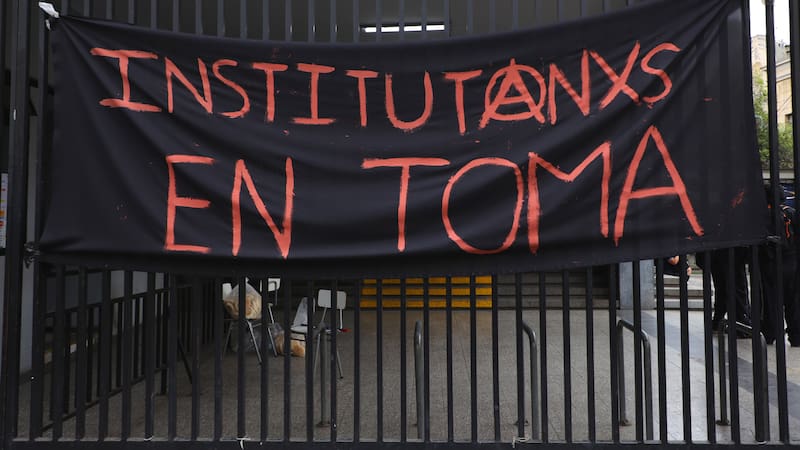 INSTITUTANXS
EN TOMA